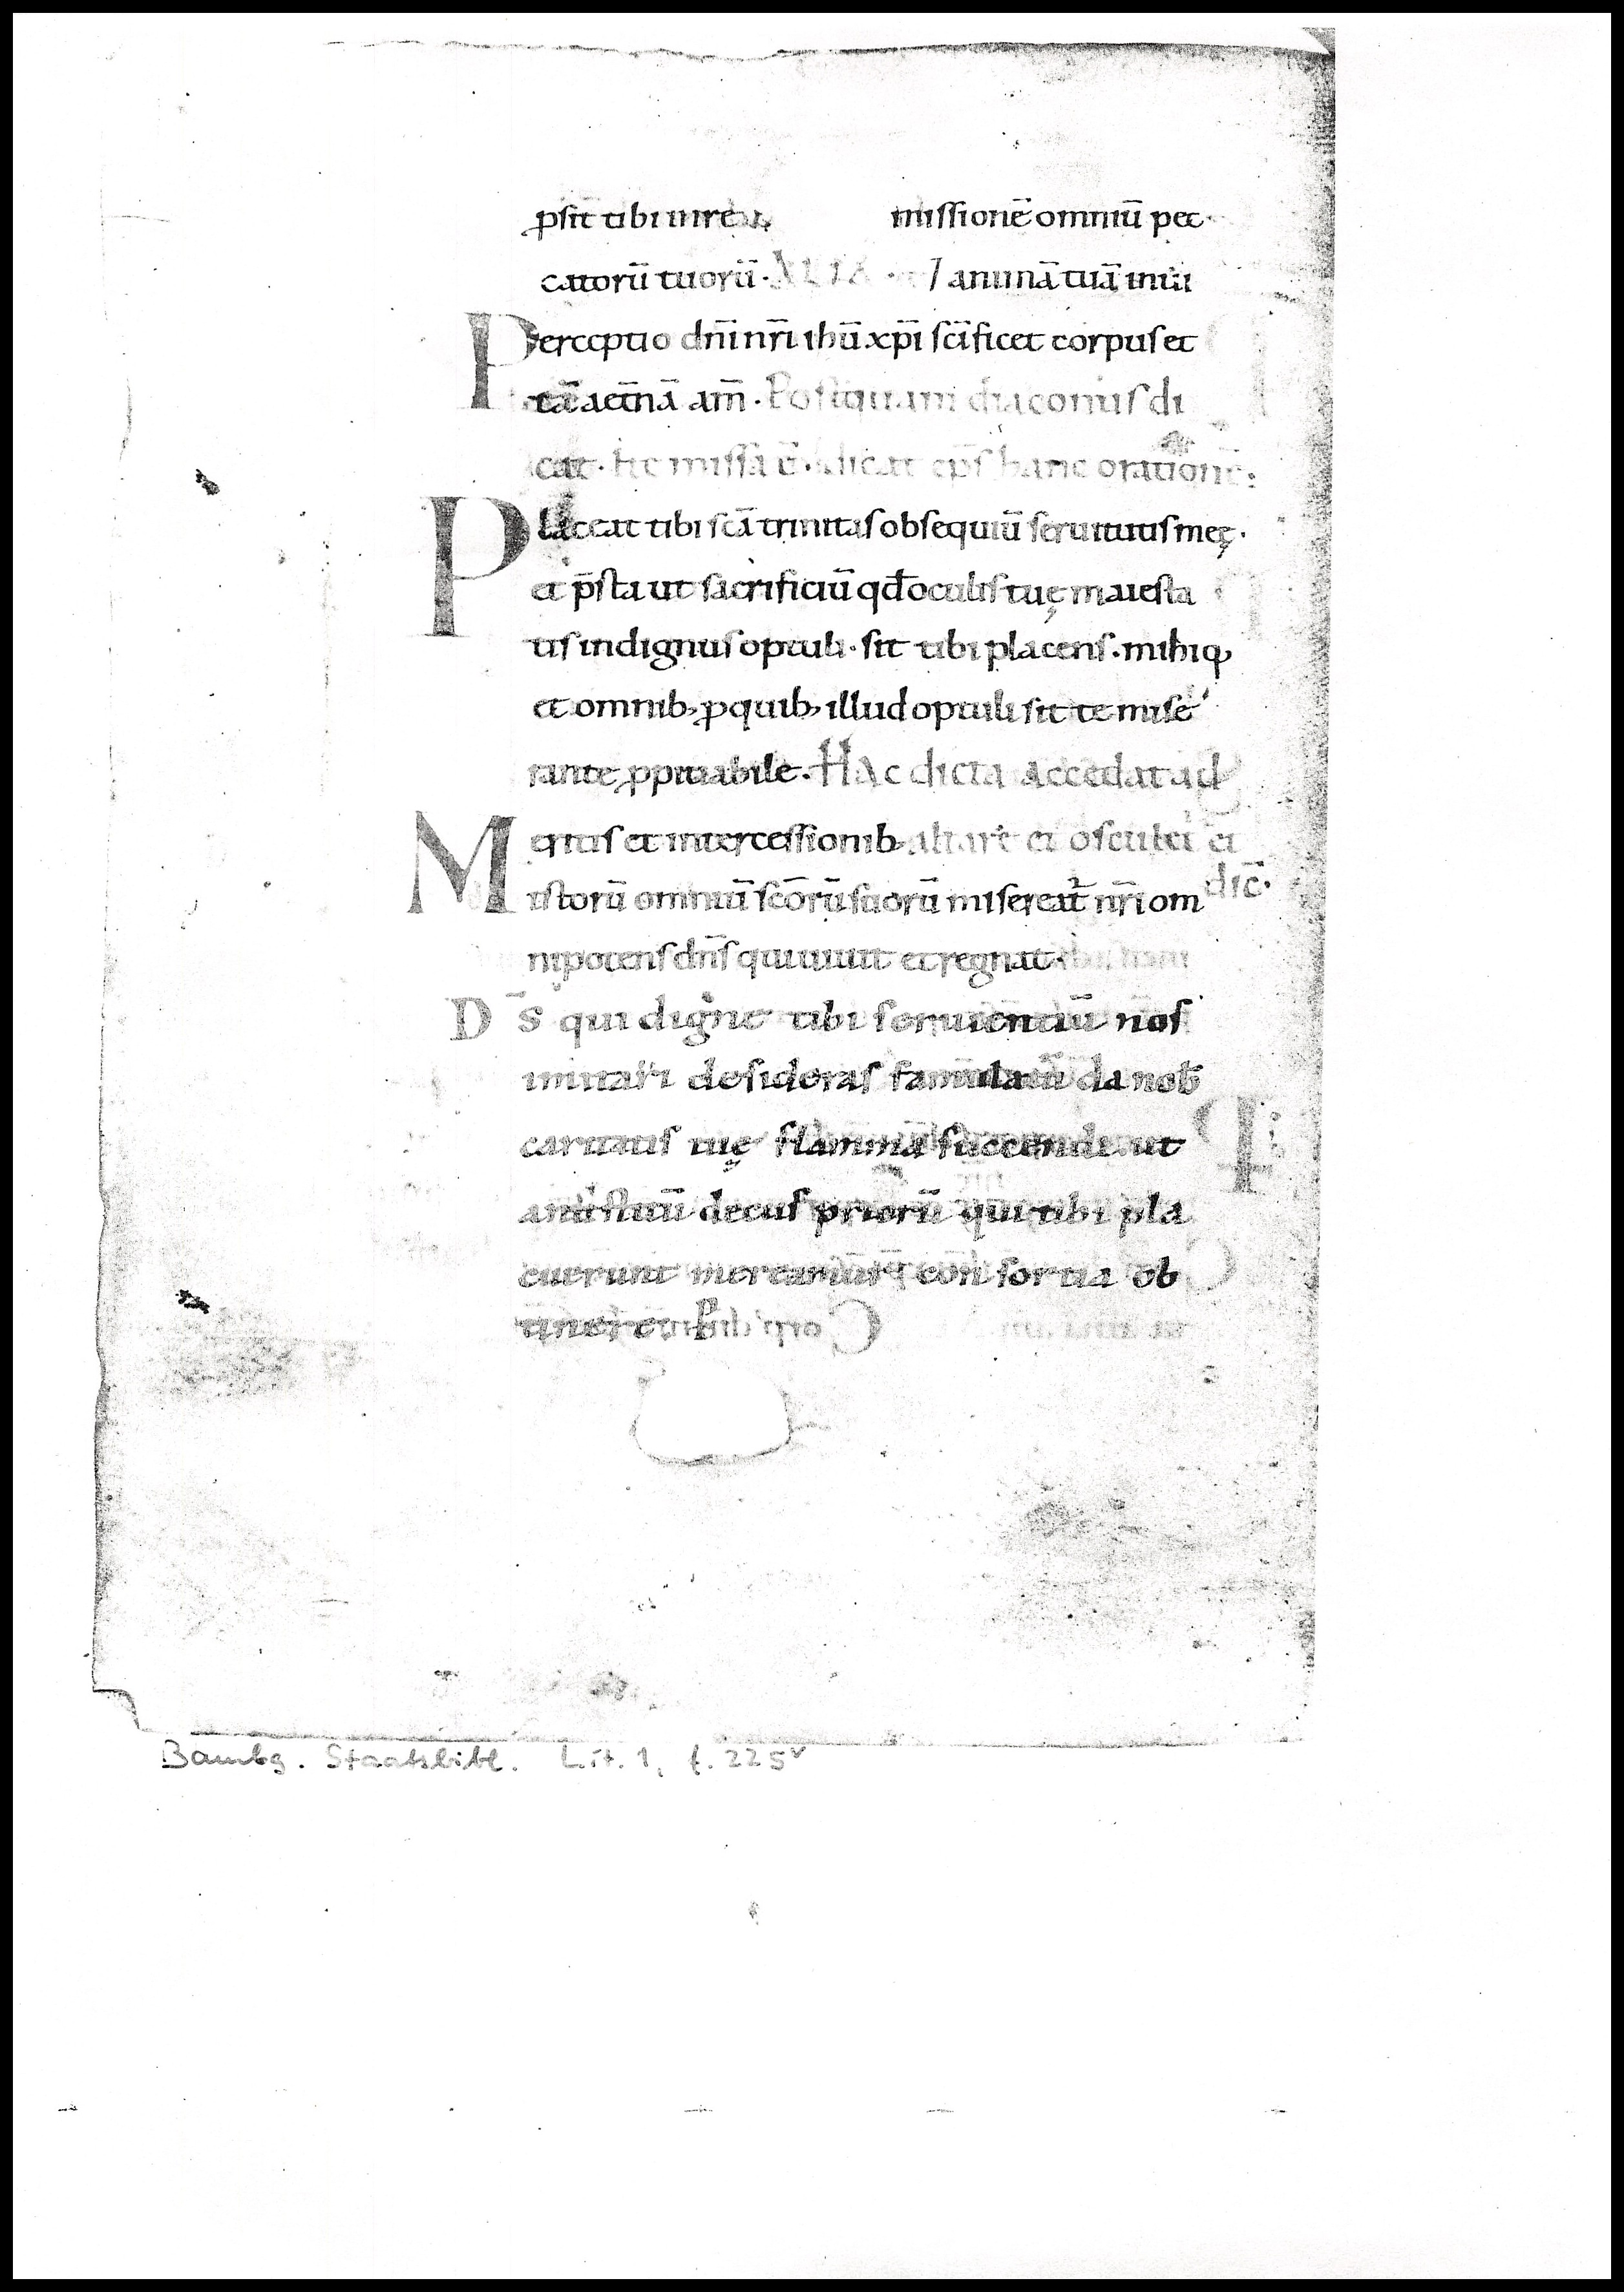 ꝓsit tibi in re missionē omniū pec
catorū tuorū · ALIA / animā tuā in ui
Perceptio dn̄i nr̄i ihū xp̄i sc̄ificet corpus et
tā aet̄nā am̄ · Postquam diaconus di
cat · Ite missa ē · dicat ep̄s hanc orationē:
Placeat tibi sc̄a trinitas obsequiū seruitutis meę ·
et p̄sta ut sacrificiū qđ oculis tuę maiesta
tis indignus optuli · sit tibi placens · mihiq;
et omnib; ꝓ quib; illud optuli sit te mise
rante ꝓpitiabile · Hac dicta accedat ad
Meritis et intercessionib; altare et osculet̉ et
istorū omniū sc̄orū suorū misereat̄ nr̄i om dic̄ ·
nipotens dn̄s qui uiuit et regnat ·
Ds̄ qui digne tibi seruientiū nos
imitari desideras famulatū da nob̄
caritatis tuę flamma succendi ut
antistitū decus priorū qui tibi pla
cuerunt mereamur consortia ob
tinere P
Bambg. Staatsbibl. Lit. 1, f. 225v